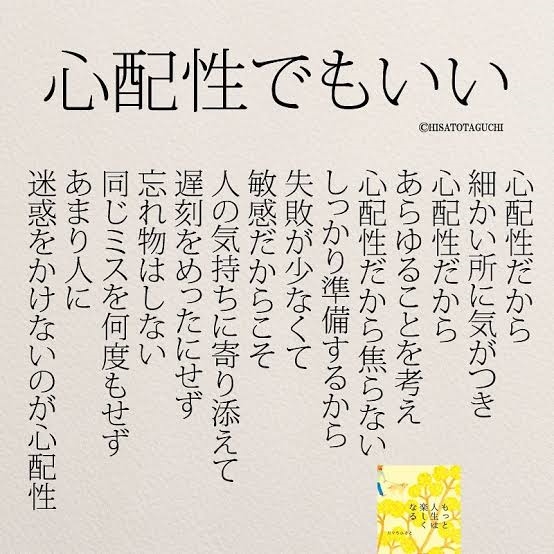 心配性でもいい
©HISATOTAGUCHI
心配性だから
細かい所に気がつき
心配性だから
あらゆることを考え
心配性だから焦らない
しっかり準備するから
失敗が少なくて
敏感だからこそ
人の気持ちに寄り添えて
遅刻をめったにせず
忘れ物はしない
同じミスを何度もせず
あまり人に
迷惑をかけないのが心配性
もっと
人生は
楽しく
なる